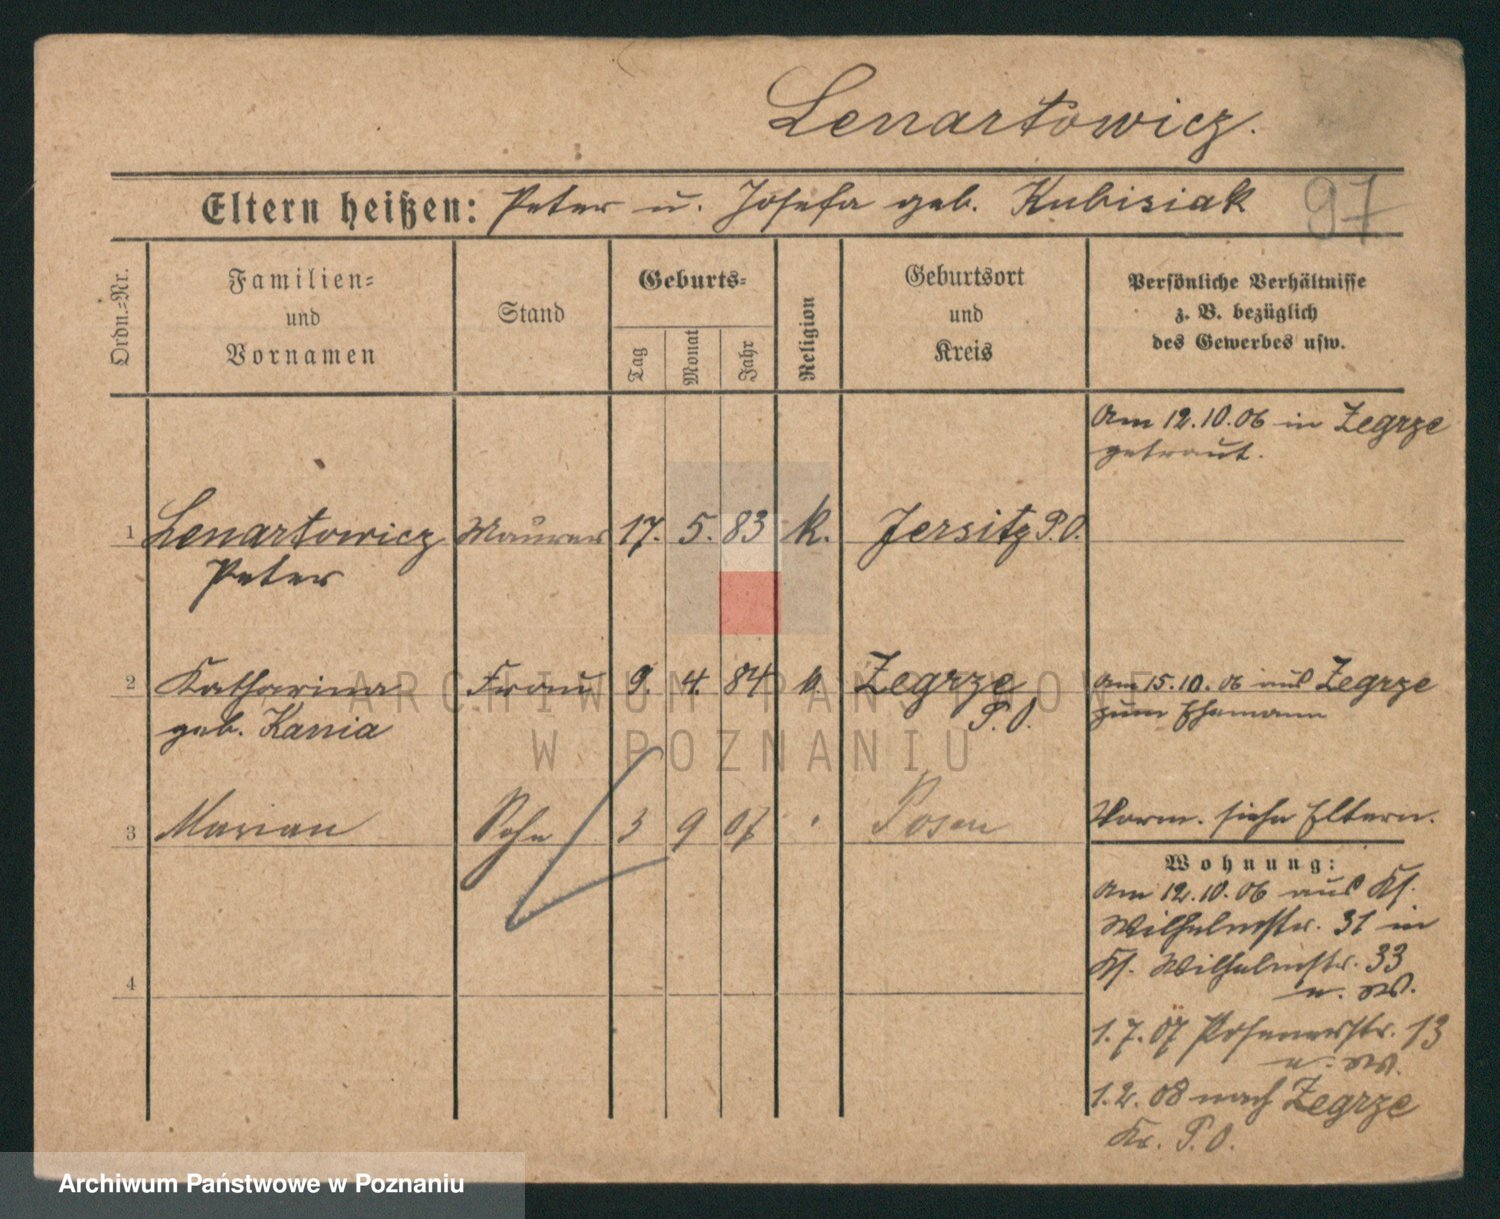 Lenartowicz.
Eltern heißen: Peter u. Josefa geb. Kubisiak
97
Ordn.-Nr.
Familien-
und
Vornamen
Stand
Geburts-
Tag
Monat
Jahr
Religion
Geburtsort
und
Kreis
Persönliche Verhältnisse
z. B. bezüglich
des Gewerbes usw.
Am 12.10.06 in Zegrze
getraut.
1 Lenartowicz Maurer 17. 5. 83 k. Jersitz P.O.
Peter
2 Katharina Frau 9. 4. 84 k Zegrze
P.O.
geb. Kania
am 15.10.06 aus Zegrze
zum Ehemann
3 Marian Sohn 3 9 07 Posen
Vorm. siehe Eltern.
Wohnung:
Am 12.10.06 aus Kl.
Wilhelmstr. 31 in
Kl. Wilhelmstr. 33
4
1.7.07 Posenerstr. 13
1.2.08 nach Zegrze
Kr. P.O.
ARCHIWUM PAŃSTWOWE
W POZNANIU
Archiwum Państwowe w Poznaniu